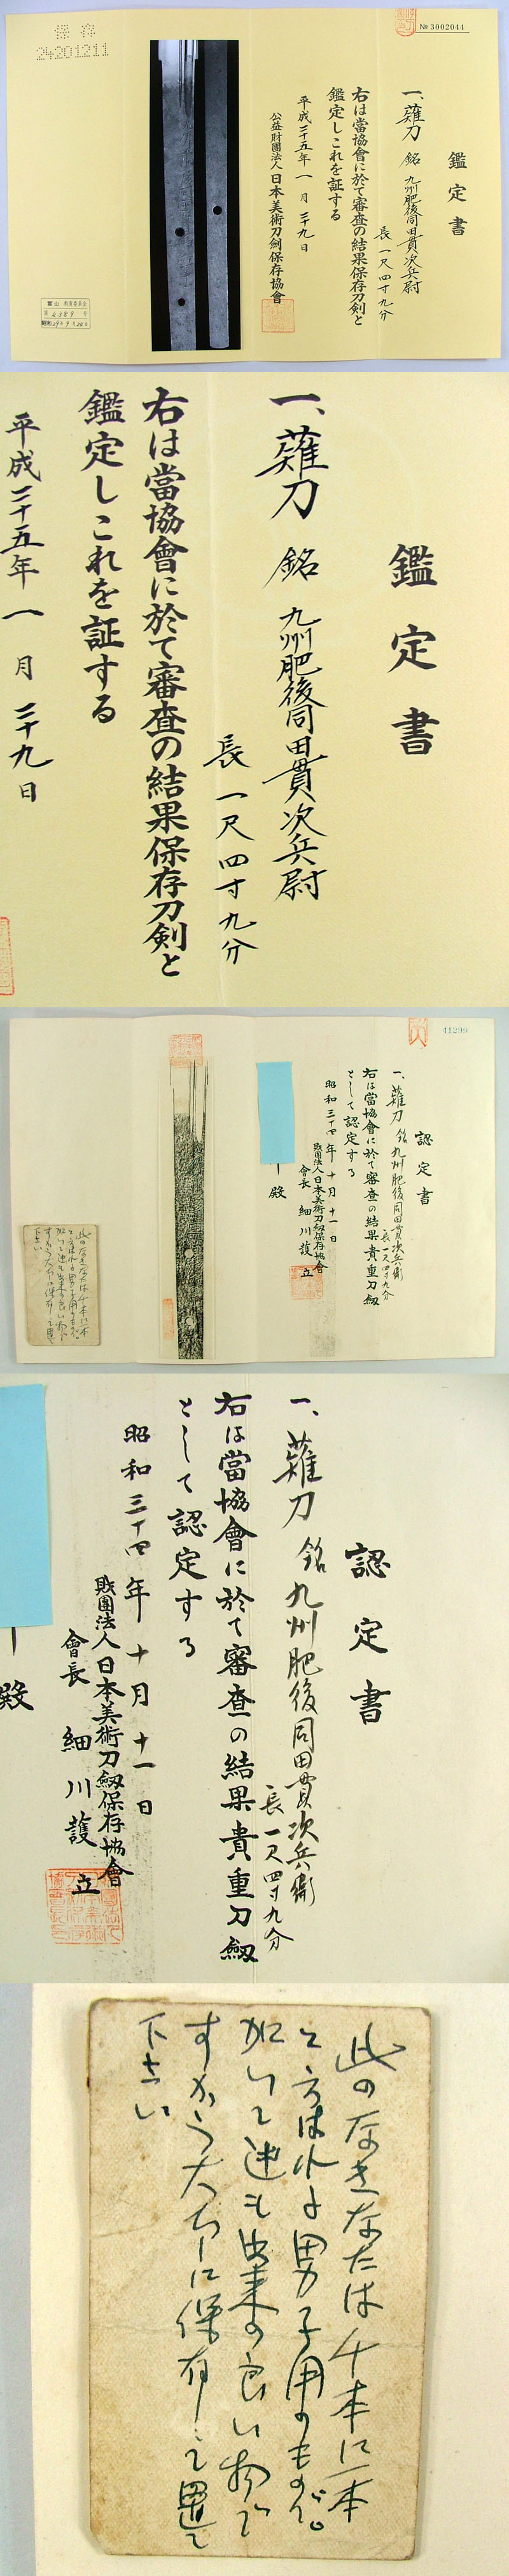 保存
24201211
№3002044
鑑定書
一、薙刀 銘 九州肥後同田貫次兵尉
長 一尺四寸九分
右は當協會に於て審査の結果保存刀剣と
鑑定しこれを証する
平成二十五年 一 月 二十九日
公益財團法人日本美術刀剣保存協會
富山
鑑定書
一、薙刀 銘 九州肥後同田貫次兵尉
長 一尺四寸九分
右は當協會に於て審査の結果保存刀剣と
鑑定しこれを証する
平成二十五年 一 月 二十九日
41299
認定書
一、薙刀 銘九州肥後同田貫次兵衛
長一尺四寸九分
右は當協會に於て審査の結果貴重刀劔
として認定する
昭和三十四年十月十一日
財團法人日本美術刀劔保存協會
會長 細川護立
殿
此のなぎなたは千本に一本
認定書
一、薙刀 銘九州肥後同田貫次兵衛
長一尺四寸九分
右は當協會に於て審査の結果貴重刀劔
として認定する
昭和三十四年十月十一日
財團法人日本美術刀劔保存協會
會長 細川護立
殿
此のなぎなたは千本に一本
と言はれる男子用のもので。
加いて迚も出来の良い物で
すから大切に保存して置て
下さい